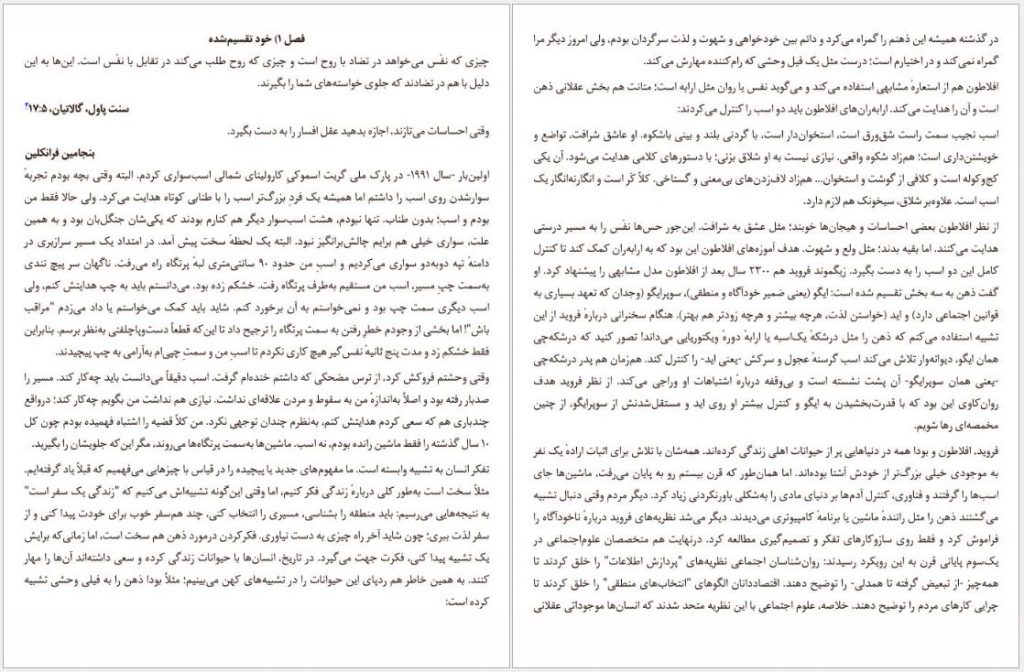 فصل ۱) خود تقسیم‌شده
چیزی که نفْس می‌خواهد در تضاد با روح است و چیزی که روح طلب می‌کند در تقابل با نفْس است. این‌ها به این
دلیل با هم در تضادند که جلوی خواسته‌های شما را بگیرند.
سنت پاول، گالاتیان، ۱۷:۵
وقتی احساسات می‌تازند، اجازه بدهید عقل افسار را به دست بگیرد.
بنجامین فرانکلین
اولین‌بار -سال ۱۹۹۱- در پارک ملی گریت اسموکی کارولینای شمالی اسب‌سواری کردم. البته وقتی بچه بودم تجربهٔ
سوارشدن روی اسب را داشتم اما همیشه یک فردِ بزرگ‌تر اسب را با طنابی کوتاه هدایت می‌کرد. ولی حالا فقط من
بودم و اسب؛ بدون طناب. تنها نبودم، هشت اسب‌سوار دیگر هم کنارم بودند که یکی‌شان جنگل‌بان بود و به همین
علت، سواری خیلی هم برایم چالش‌برانگیز نبود. البته یک لحظهٔ سخت پیش آمد. در امتداد یک مسیر سرازیری در
دامنهٔ تپه دوبه‌دو سواری می‌کردیم و اسبِ من حدود ۹۰ سانتی‌متری لبهٔ پرتگاه راه می‌رفت. ناگهان سر پیچ تندی
به‌سمت چپِ مسیر، اسب من مستقیم به‌طرف پرتگاه رفت. خشکم زده بود. می‌دانستم باید به چپ هدایتش کنم، ولی
اسب دیگری سمت چپ بود و نمی‌خواستم به آن برخورد کنم. شاید باید کمک می‌خواستم یا داد می‌زدم "مراقب
باش"! اما بخشی از وجودم خطرِ رفتن به سمت پرتگاه را ترجیح داد تا این‌که قطعاً دست‌وپاچلفتی به‌نظر برسم. بنابراین
فقط خشکم زد و مدت پنج ثانیهٔ نفس‌گیر هیچ کاری نکردم تا اسبِ من و سمتِ چپی‌ام به‌آرامی به چپ پیچیدند.
وقتی وحشتم فروکش کرد، از ترس مضحکی که داشتم خنده‌ام گرفت. اسب دقیقاً می‌دانست باید چه‌کار کند. مسیر را
صدبار رفته بود و اصلاً به‌اندازهٔ من به سقوط و مردن علاقه‌ای نداشت. نیازی هم نداشت من بگویم چه‌کار کند؛ درواقع
چندباری هم که سعی کردم هدایتش کنم، به‌نظرم چندان توجهی نکرد. من کلاً قضیه را اشتباه فهمیده بودم چون کل
۱۰ سال گذشته را فقط ماشین رانده بودم، نه اسب. ماشین‌ها به‌سمت پرتگاه‌ها می‌روند، مگر این‌که جلویشان را بگیرید.
تفکر انسان به تشبیه وابسته است. ما مفهوم‌های جدید یا پیچیده را در قیاس با چیزهایی می‌فهمیم که قبلاً یاد گرفته‌ایم.
مثلاً سخت است به‌طور کلی دربارهٔ زندگی فکر کنیم، اما وقتی این‌گونه تشبیه‌اش می‌کنیم که "زندگی یک سفر است"
به نتیجه‌هایی می‌رسیم: باید منطقه را بشناسی، مسیری را انتخاب کنی، چند هم‌سفر خوب برای خودت پیدا کنی و از
سفر لذت ببری؛ چون شاید آخر راه چیزی به دست نیاوری. فکرکردن درمورد ذهن هم سخت است، اما زمانی‌که برایش
یک تشبیه پیدا کنی، فکرت جهت می‌گیرد. در تاریخ، انسان‌ها با حیوانات زندگی کرده و سعی داشته‌اند آن‌ها را مهار
کنند. به همین خاطر هم ردپای این حیوانات را در تشبیه‌های کهن می‌بینیم؛ مثلاً بودا ذهن را به فیلی وحشی تشبیه
کرده است:
در گذشته همیشه این ذهنم را گمراه می‌کرد و دائم بین خودخواهی و شهوت و لذت سرگردان بودم، ولی امروز دیگر مرا
گمراه نمی‌کند و در اختیارم است؛ درست مثل یک فیل وحشی که رام‌کننده مهارش می‌کند.
افلاطون هم از استعارهٔ مشابهی استفاده می‌کند و می‌گوید نفس یا روان مثل ارابه است؛ متانت هم بخش عقلانی ذهن
است و آن را هدایت می‌کند. ارابه‌ران‌های افلاطون باید دو اسب را کنترل می‌کردند:
اسب نجیب سمت راست شق‌ورق است، استخوان‌دار است، با گردنی بلند و بینی باشکوه. او عاشق شرافت، تواضع و
خویشتن‌داری است؛ هم‌زاد شکوه واقعی. نیازی نیست به او شلاق بزنی؛ با دستورهای کلامی هدایت می‌شود. آن یکی
کج‌وکوله است و کلافی از گوشت و استخوان... هم‌زاد لاف‌زدن‌های بی‌معنی و گستاخی. کلاً کَر است و انگارنه‌انگار یک
اسب است. علاوه‌بر شلاق، سیخونک هم لازم دارد.
از نظر افلاطون بعضی احساسات و هیجان‌ها خوبند؛ مثل عشق به شرافت. این‌جور حس‌ها نفْس را به مسیر درستی
هدایت می‌کنند. اما بقیه بدند؛ مثل ولع و شهوت. هدف آموزه‌های افلاطون این بود که به ارابه‌ران کمک کند تا کنترل
کامل این دو اسب را به دست بگیرد. زیگموند فروید هم ۲۳۰۰ سال بعد از افلاطون مدل مشابهی را پیشنهاد کرد. او
گفت ذهن به سه بخش تقسیم شده است: ایگو (یعنی ضمیر خودآگاه و منطقی)، سوپرایگو (وجدان که تعهد بسیاری به
قوانین اجتماعی دارد) و اید (خواستن لذت، هرچه بیشتر و هرچه زودتر هم بهتر). هنگام سخنرانی دربارهٔ فروید از این
تشبیه استفاده می‌کنم که ذهن را مثل درشکهٔ یک‌اسبه یا ارابهٔ دورهٔ ویکتوریایی می‌داند! تصور کنید که درشکه‌چی
همان ایگو، دیوانه‌وار تلاش می‌کند اسب گرسنهٔ عجول و سرکش -یعنی اید- را کنترل کند. هم‌زمان هم پدر درشکه‌چی
-یعنی همان سوپرایگو- آن پشت نشسته است و بی‌وقفه دربارهٔ اشتباهات او وراجی می‌کند. از نظر فروید هدف
روان‌کاوی این بود که با قدرت‌بخشیدن به ایگو و کنترل بیشتر او روی اید و مستقل‌شدنش از سوپرایگو، از چنین
مخمصه‌ای رها شویم.
فروید، افلاطون و بودا همه در دنیاهایی پر از حیوانات اهلی زندگی کرده‌اند. همه‌شان با تلاش برای اثبات ارادهٔ یک نفر
به موجودی خیلی بزرگ‌تر از خودش آشنا بوده‌اند. اما همان‌طور که قرن بیستم رو به پایان می‌رفت، ماشین‌ها جای
اسب‌ها را گرفتند و فناوری، کنترل آدم‌ها بر دنیای مادی را به‌شکلی باورنکردنی زیاد کرد. دیگر مردم وقتی دنبال تشبیه
می‌گشتند ذهن را مثل رانندهٔ ماشین یا برنامهٔ کامپیوتری می‌دیدند. دیگر می‌شد نظریه‌های فروید دربارهٔ ناخودآگاه را
فراموش کرد و فقط روی سازوکارهای تفکر و تصمیم‌گیری مطالعه کرد. درنهایت هم متخصصان علوم‌اجتماعی در
یک‌سوم پایانی قرن به این رویکرد رسیدند: روان‌شناسان اجتماعی نظریه‌های "پردازش اطلاعات" را خلق کردند تا
همه‌چیز -از تبعیض گرفته تا همدلی- را توضیح دهند. اقتصاددانان الگوهای "انتخاب‌های منطقی" را خلق کردند تا
چرایی کارهای مردم را توضیح دهند. خلاصه، علوم اجتماعی با این نظریه متحد شدند که انسان‌ها موجوداتی عقلانی